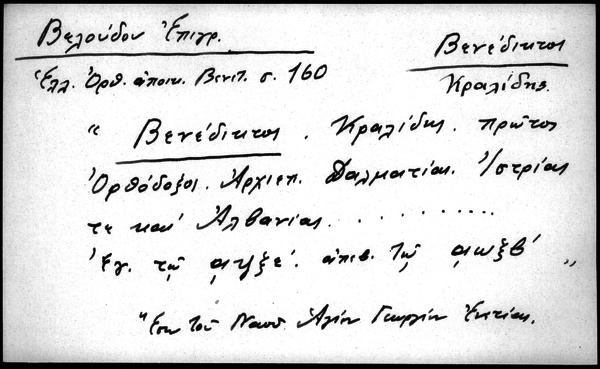 Βελούδου Ἐπιγρ.
Βενέδικτος
Κραλίδης.
Ἑλλ. Ὀρθ. ἀποικ. Βενετ. σ. 160
"Βενέδικτος. Κραλίδης. πρῶτος
Ὀρθόδοξος. Ἀρχιεπ. Δαλματίας. Ἰστρίας
τε καὶ Ἀλβανίας..........
Ἐγ. τῷ αψξε΄. ἀπεβ. τῷ αωξβ΄ "
" τοῦ Ναοῦ Ἁγίου Γεωργίου Ἐνετίας.